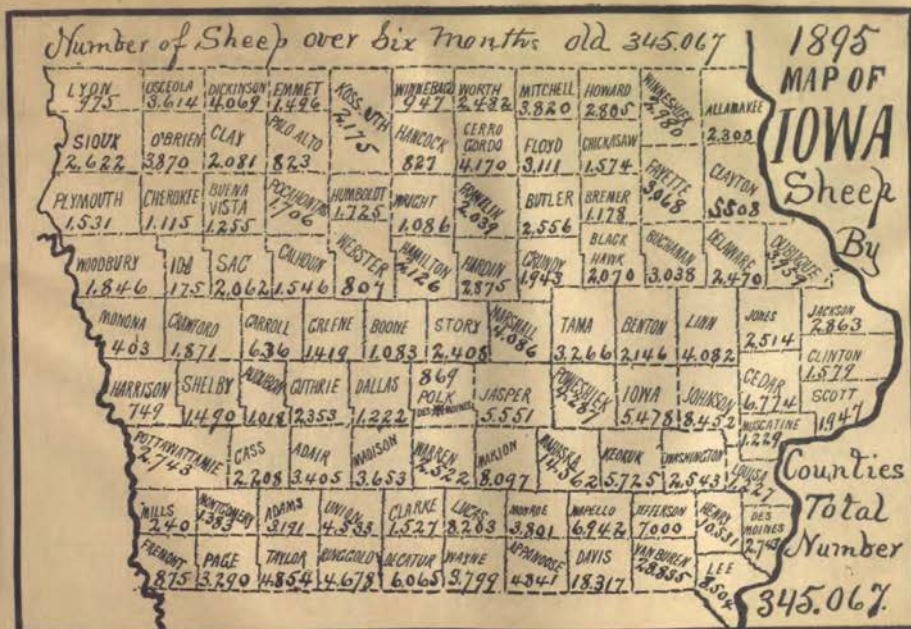 Number of Sheep over six months old 345.067
1895
MAP OF
IOWA
Sheep
By
Counties
Total
Number
345.067.
LYON
975
OSCEOLA
3.614
DICKINSON
4.069
EMMET
1.496
KOSSUTH
2.175
WINNEBAGO
947
WORTH
2.482
MITCHELL
3.820
HOWARD
2.805
WINNESHIEK
2.980
ALLAMAKEE
2.308
SIOUX
2.622
O'BRIEN
3870
CLAY
2.081
PALO ALTO
823
HANCOCK
827
CERRO
GORDO
4.170
FLOYD
3.111
CHICKASAW
1.574
FAYETTE
3.068
CLAYTON
5508
PLYMOUTH
1.531
CHEROKEE
1.115
BUENA
VISTA
1.255
POCAHONTAS
1.706
HUMBOLDT
1.725
WRIGHT
1.086
FRANKLIN
2.039
BUTLER
2.556
BREMER
1.178
WOODBURY
1.846
IDA
175
SAC
2.062
CALHOUN
1.546
WEBSTER
807
HAMILTON
2.126
HARDIN
2875
GRUNDY
1.943
BLACK
HAWK
2.070
BUCHANAN
3.038
DELAWARE
2.470
DUBUQUE
3.959
MONONA
403
CRAWFORD
1.871
CARROLL
636
GREENE
1.419
BOONE
1.083
STORY
2.408
MARSHALL
4.086
TAMA
3.266
BENTON
2.146
LINN
4.082
JONES
2.514
JACKSON
2.863
CLINTON
1.579
HARRISON
749
SHELBY
1.490
AUDUBON
1.018
GUTHRIE
2353
DALLAS
1.222
869
POLK
DES MOINES
JASPER
5.551
POWESHIEK
4.287
IOWA
5.478
JOHNSON
8.452
CEDAR
6.774
SCOTT
1.947
MUSCATINE
1.229
POTTAWATTAMIE
2.743
CASS
2.208
ADAIR
3.405
MADISON
3.653
WARREN
2.522
MARION
8.097
MAHASKA
14.362
KEOKUK
5.725
WASHINGTON
2.543
LOUISA
1.227
MILLS
240
MONTGOMERY
1.383
ADAMS
3.191
UNION
4.533
CLARKE
1.527
LUCAS
8.203
MONROE
3.801
WAPELLO
6.942
JEFFERSON
7.000
HENRY
10.531
DES
MOINES
2.743
FREMONT
875
PAGE
3.290
TAYLOR
4.854
RINGGOLD
4.678
DECATUR
6.065
WAYNE
3.799
APPANOOSE
4841
DAVIS
18.317
VAN BUREN
28.835
LEE
8.504